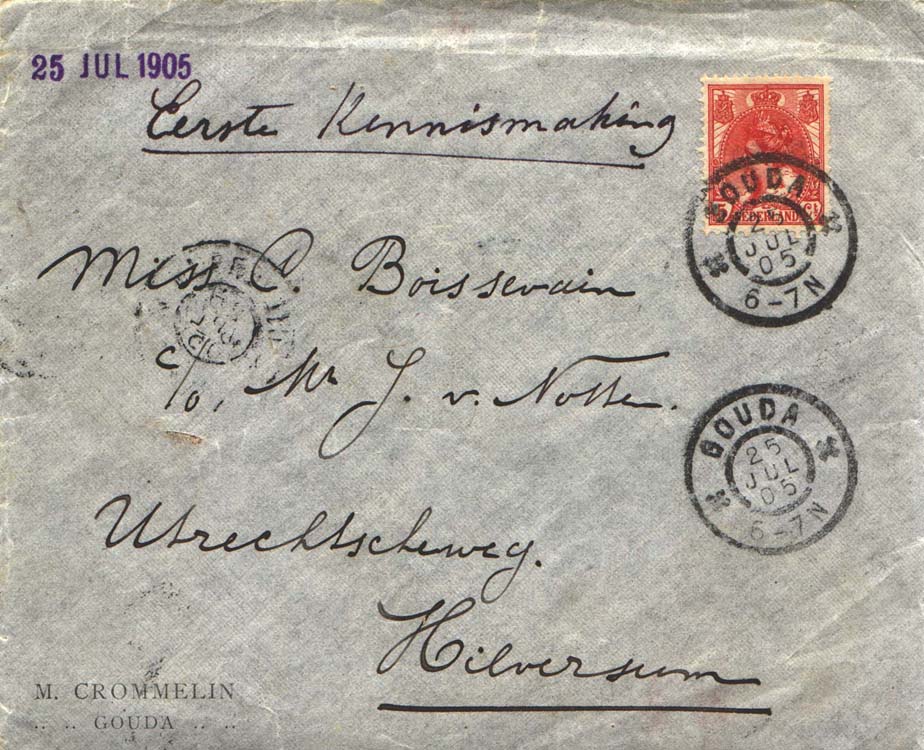 25 JUL 1905
Eerste Kennismaking
NEDERLAND
GOUDA
25
JUL
05
6-7N
Miss C. Boissevain
c/o, Mr J. v. Notten.
GOUDA
25
JUL
05
6-7N
Utrechtscheweg.
Hilversum
M. CROMMELIN
.. .. GOUDA .. ..